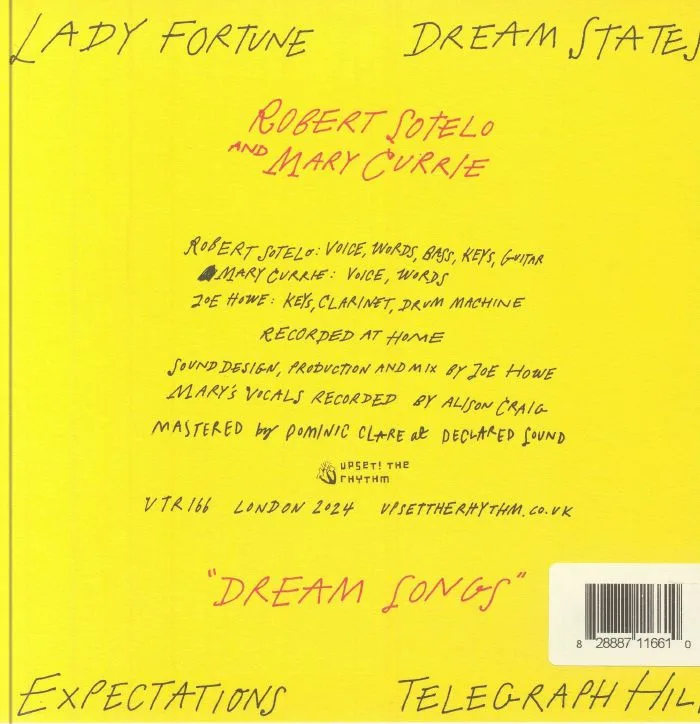 LADY FORTUNE DREAM STATES
ROBERT SOTELO
AND MARY CURRIE
ROBERT SOTELO: VOICE, WORDS, BASS, KEYS, GUITAR
MARY CURRIE: VOICE, WORDS
JOE HOWE: KEYS, CLARINET, DRUM MACHINE
RECORDED AT HOME
SOUND DESIGN, PRODUCTION AND MIX BY JOE HOWE
MARY'S VOCALS RECORDED BY ALISON CRAIG
MASTERED by DOMINIC CLARE at DECLARED SOUND
UPSET! THE
RHYTHM
UTR166 LONDON 2024 UPSETTHERHYTHM.CO.UK
"DREAM SONGS"
8 28887 11661 0
EXPECTATIONS TELEGRAPH HIL